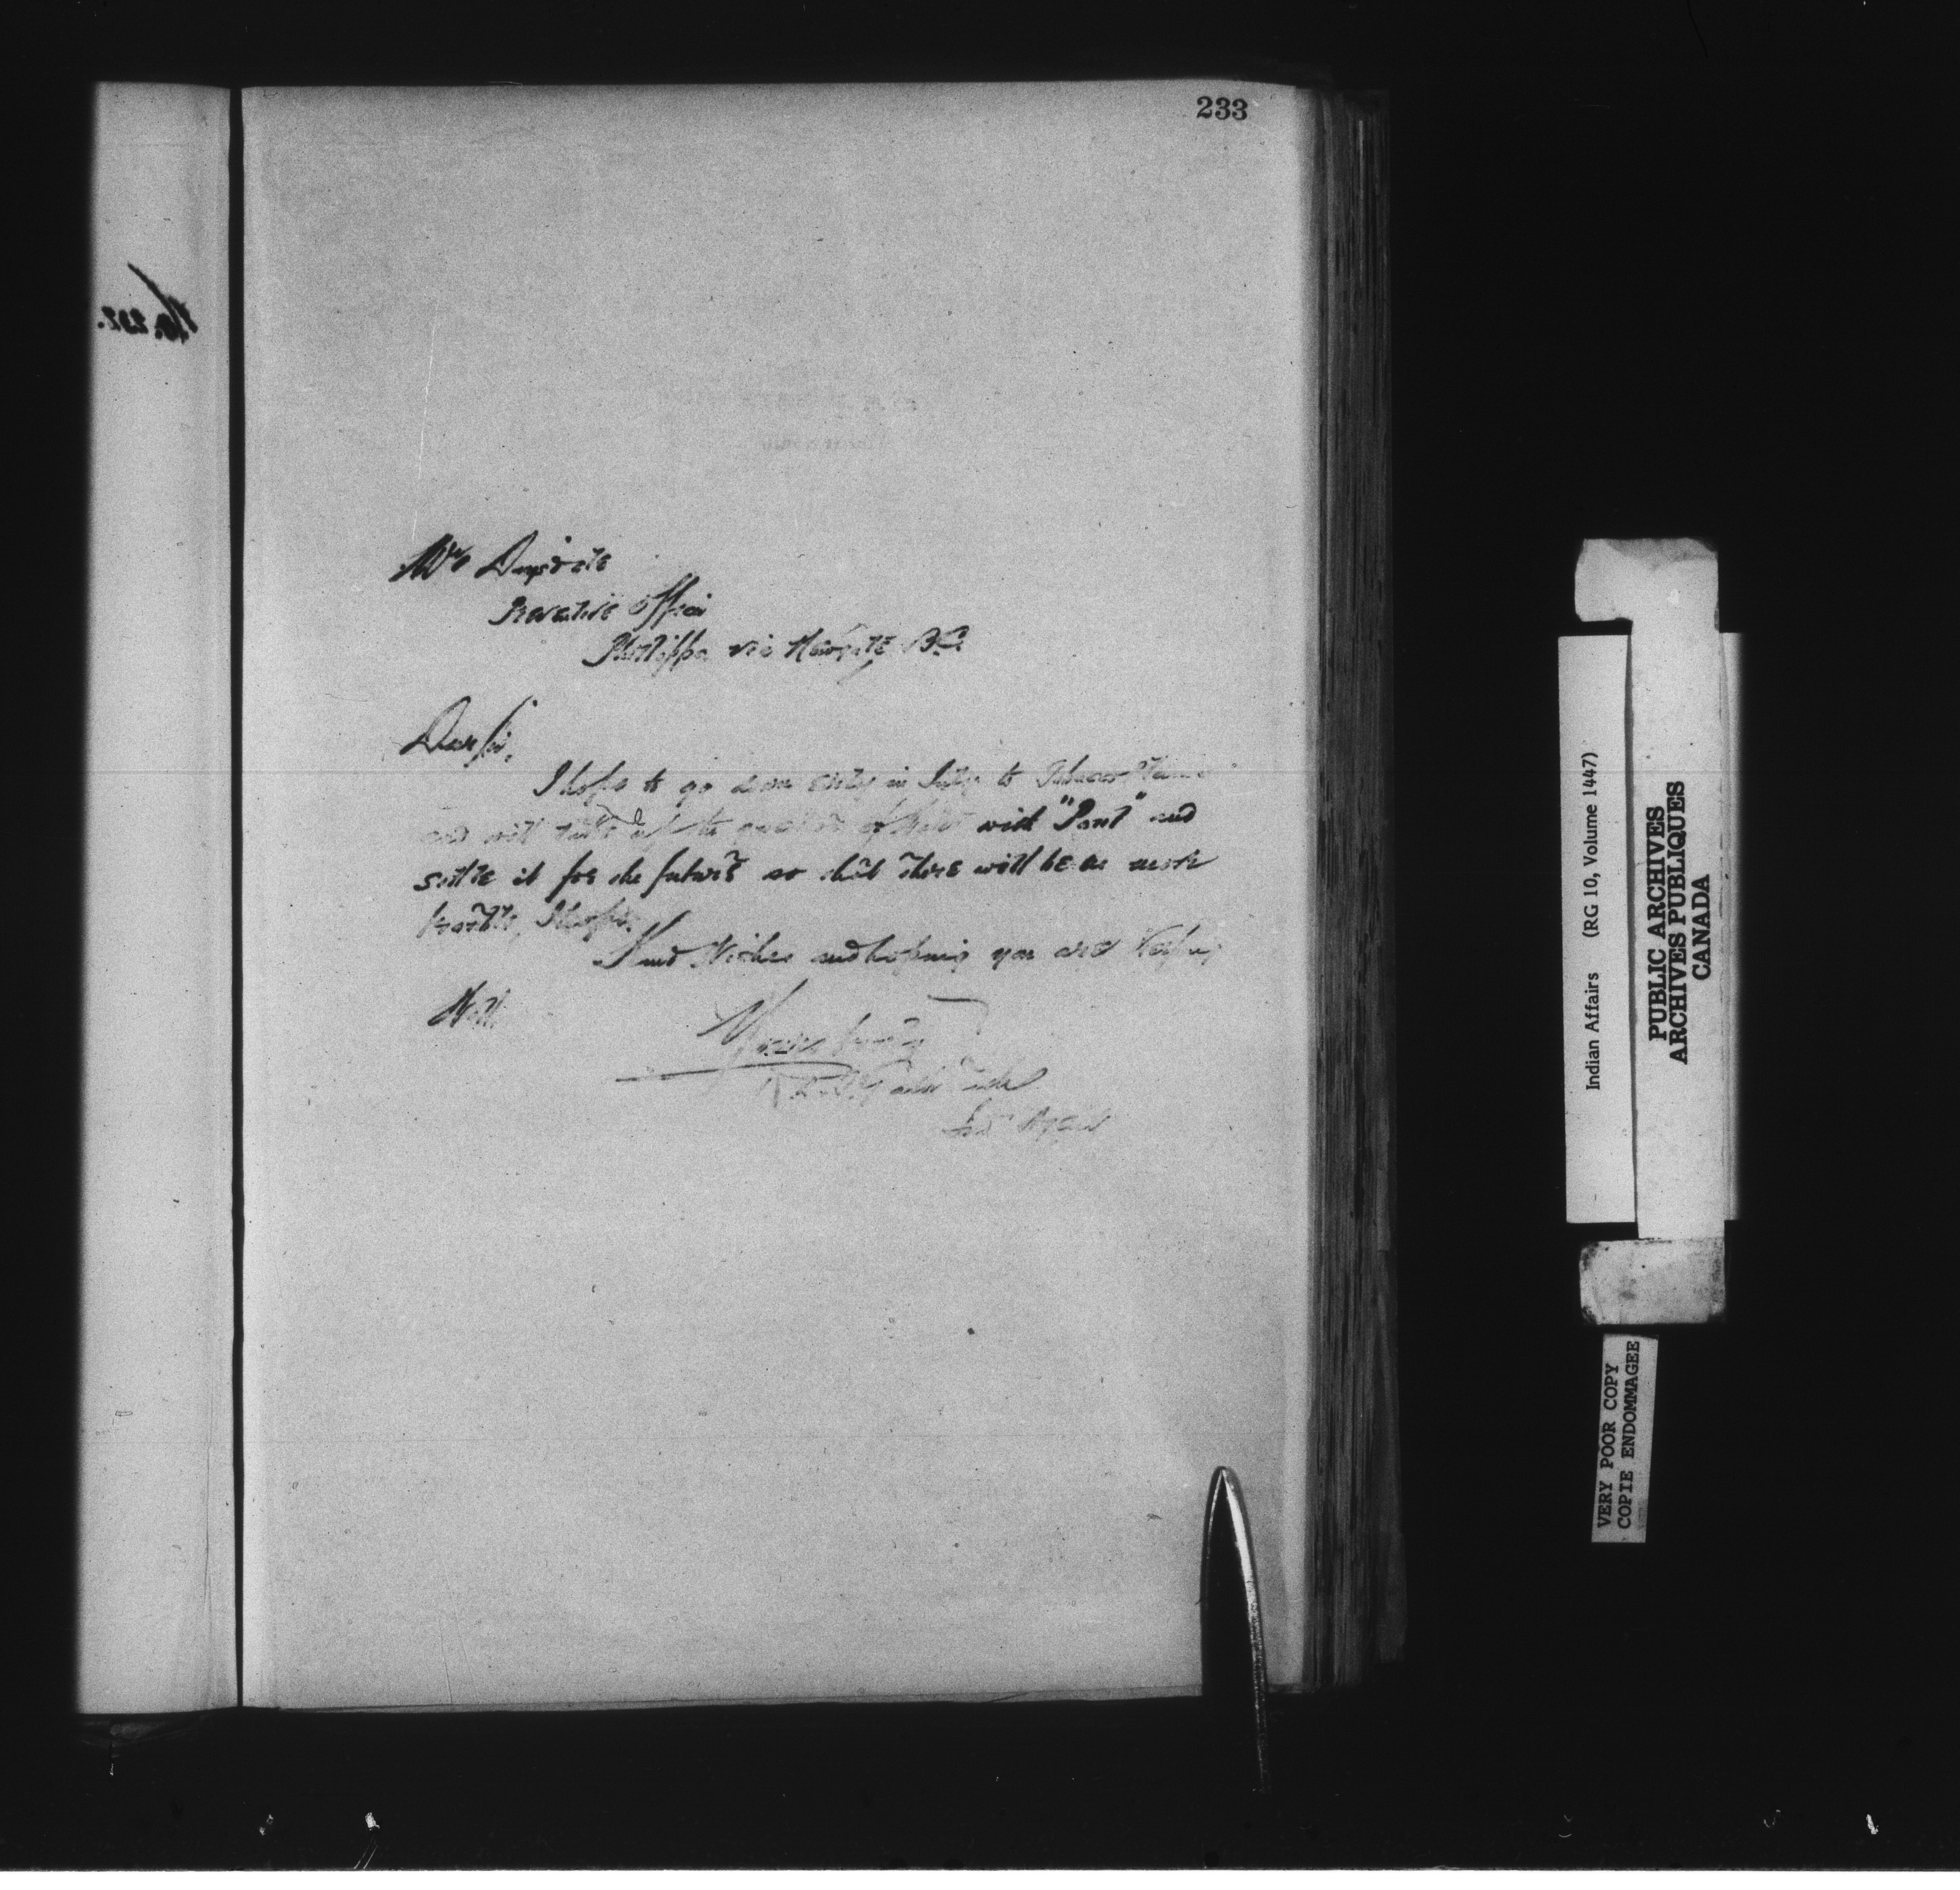 233
Mr
Preventive Officer
Phillipps via Newgate, B.C.
Dear Sir,
I hope to go down early in July to Tobacco Plains
and will take up the question of with "Paul" and
settle it for the future so that there will be no more
trouble, I hope.
Kind Wishes and hoping you are keeping
Well.
Yours truly
R. L. T. Galbraith
Ind Agent
Indian Affairs (RG 10, Volume 1447)
PUBLIC ARCHIVES
ARCHIVES PUBLIQUES
CANADA
VERY POOR COPY
COPIE ENDOMMAGEE